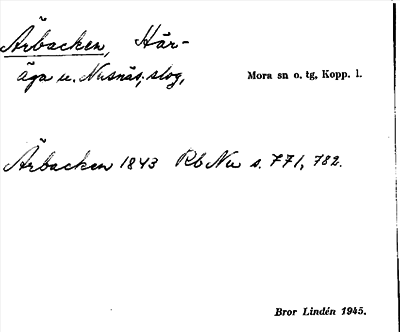 Ärbacken, Här-
äga u. Nusnäs; slog,
Mora sn o. tg, Kopp. l.
Ärbacken 1843 Rb Nu s. 771, 782.
Bror Lindén 1945.